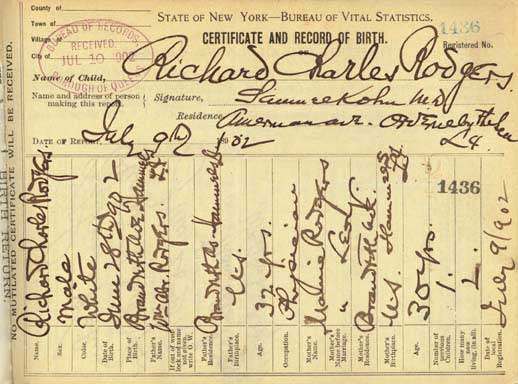 County of
Town of
Village of
City of
STATE OF NEW YORK—BUREAU OF VITAL STATISTICS.
1436
CERTIFICATE AND RECORD OF BIRTH.
Registered No.
BUREAU OF RECORDS
RECEIVED
JUL 10 902
BOROUGH OF QUEENS
Name of Child, Richard Charles Rodgers.
Name and address of person making this report.
Signature, Samuel Kohn M.D.
Residence Arverne by the Sea
L I
DATE OF REPORT, July 9th 1902
1436
Name. Richard Charles Rodgers
Sex. Male
Color. White
Date of Birth. June 28th 902
Place of Birth.
Father's Name. Wm Abr. Rodgers
If out of wedlock and name not given write O. W.
Father's Residence.
Father's Birthplace. U.S.
Age. 32 yrs.
Occupation. Physician
Mother's Name. Mamie Rodgers
Mother's Name before Marriage. " Levy
Mother's Residence.
Mother's Birthplace. U.S.
Age. 30 yrs
Number of previous Children. 1.
How many now living, (in all). 2
Date of Local Registration. July 9/902
NO MUTILATED CERTIFICATE WILL BE RECEIVED.
BIRTH RETURN.